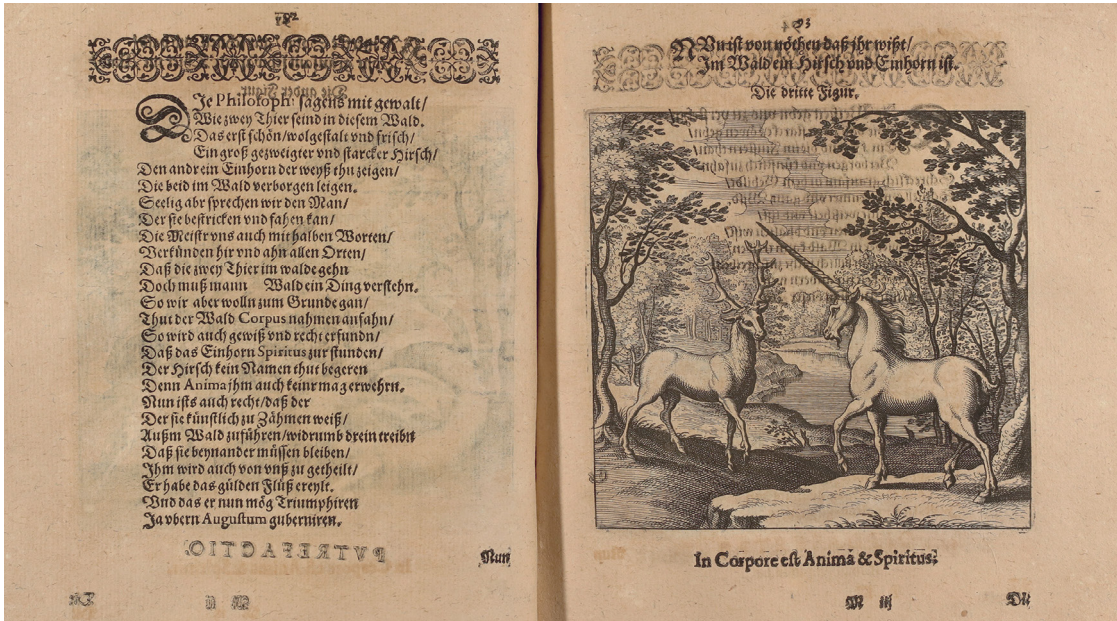 Die Philosoph: sagens mit gewalt/
Wie zwey Thier seind in diesem Wald.
Das erst schön/wolgestalt vnd frisch/
Ein groß gezweigter vnd starcker Hirsch/
Den andr ein Einhorn der weyß thu zeigen/
Die beid im Wald verborgen leigen.
Seelig abr sprechen wir den Man/
Der sie bestricken vnd fahen kan/
Die Meistr vns auch mit halben Worten/
Verkünden hir vnd ahn allen Orten/
Daß die zwey Thier im walde gehn
Doch muß mann Wald ein Ding verstehn.
So wir aber wolln zum Grunde gan/
Thut der Wald Corpus nahmen anfahn/
So wird auch gewiß vnd recht erfundn/
Daß das Einhorn Spiritus zur stunden/
Der Hirsch kein Namen thut begeren
Denn Anima jhm auch keinr mag erwehrn.
Nun ists auch recht/daß der
Der sie künstlich zu Zähmen weiß/
Außm Wald zuführen/widrumb drein treibn
Daß sie beynander müssen bleiben/
Jhm wird auch von vnß zu getheilt/
Er habe das gülden Flüß ereylt.
Vnd das er nun mög Triumphiren
Ja vbern Augustum guberniren.
Nun
93
NVn ist von nöthen daß jhr wißt/
Im Wald ein Hirsch vnd Einhorn ist.
Die dritte Figur.
In Corpore est Anima & Spiritus.
M iij